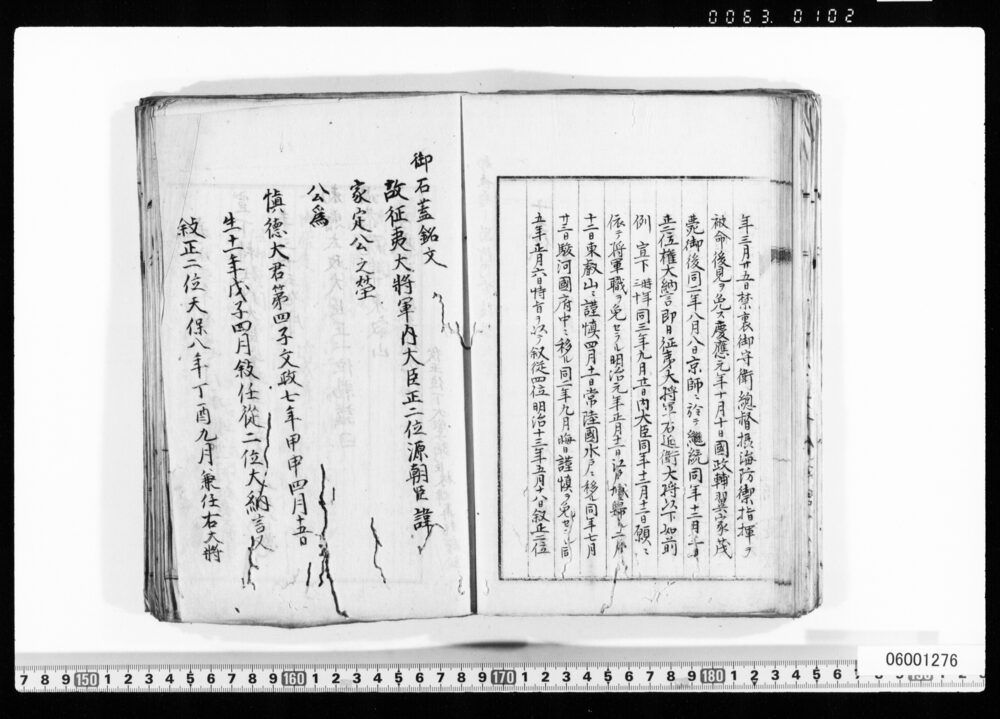 0063 0102
年三月廿五日禁裏御守衛總督摂海防禦指揮ヲ
被命後見ヲ免ス慶應元年十月十日國政輔翼家茂
薨御後同二年八月八日京師ニ於テ繼統同年十二月五日
正二位權大納言即日征夷大将軍右近衛大将以下如前
例宣下時年三十同三年九月廿一日内大臣同年十二月十二日願ニ
依テ将軍職ヲ免セラル明治元年正月十二日江戸城歸ル二月
十二日東叡山ニ謹慎四月十一日常陸國水戸ニ移ル同年七月
廿三日駿河國府中ニ移ル同二年九月晦日謹慎ヲ免セラル同
五年正月六日特旨ヲ以テ叙從四位明治十三年五月十八日叙正二位
御石蓋銘文
故征夷大将軍内大臣正二位源朝臣諱
家定公之塋
公爲
慎德大君第四子文政七年甲申四月十五日
生十一年戊子四月敍任從二位大納言又
敍正二位天保八年丁酉九月兼任右大将
7 8 9 150 1 2 3 4 5 6 7 8 9 160 1 2 3 4 5 6 7 8 9 170 1 2 3 4 5 6 7 8 9 180 1 2 3 4 5 6
06001276